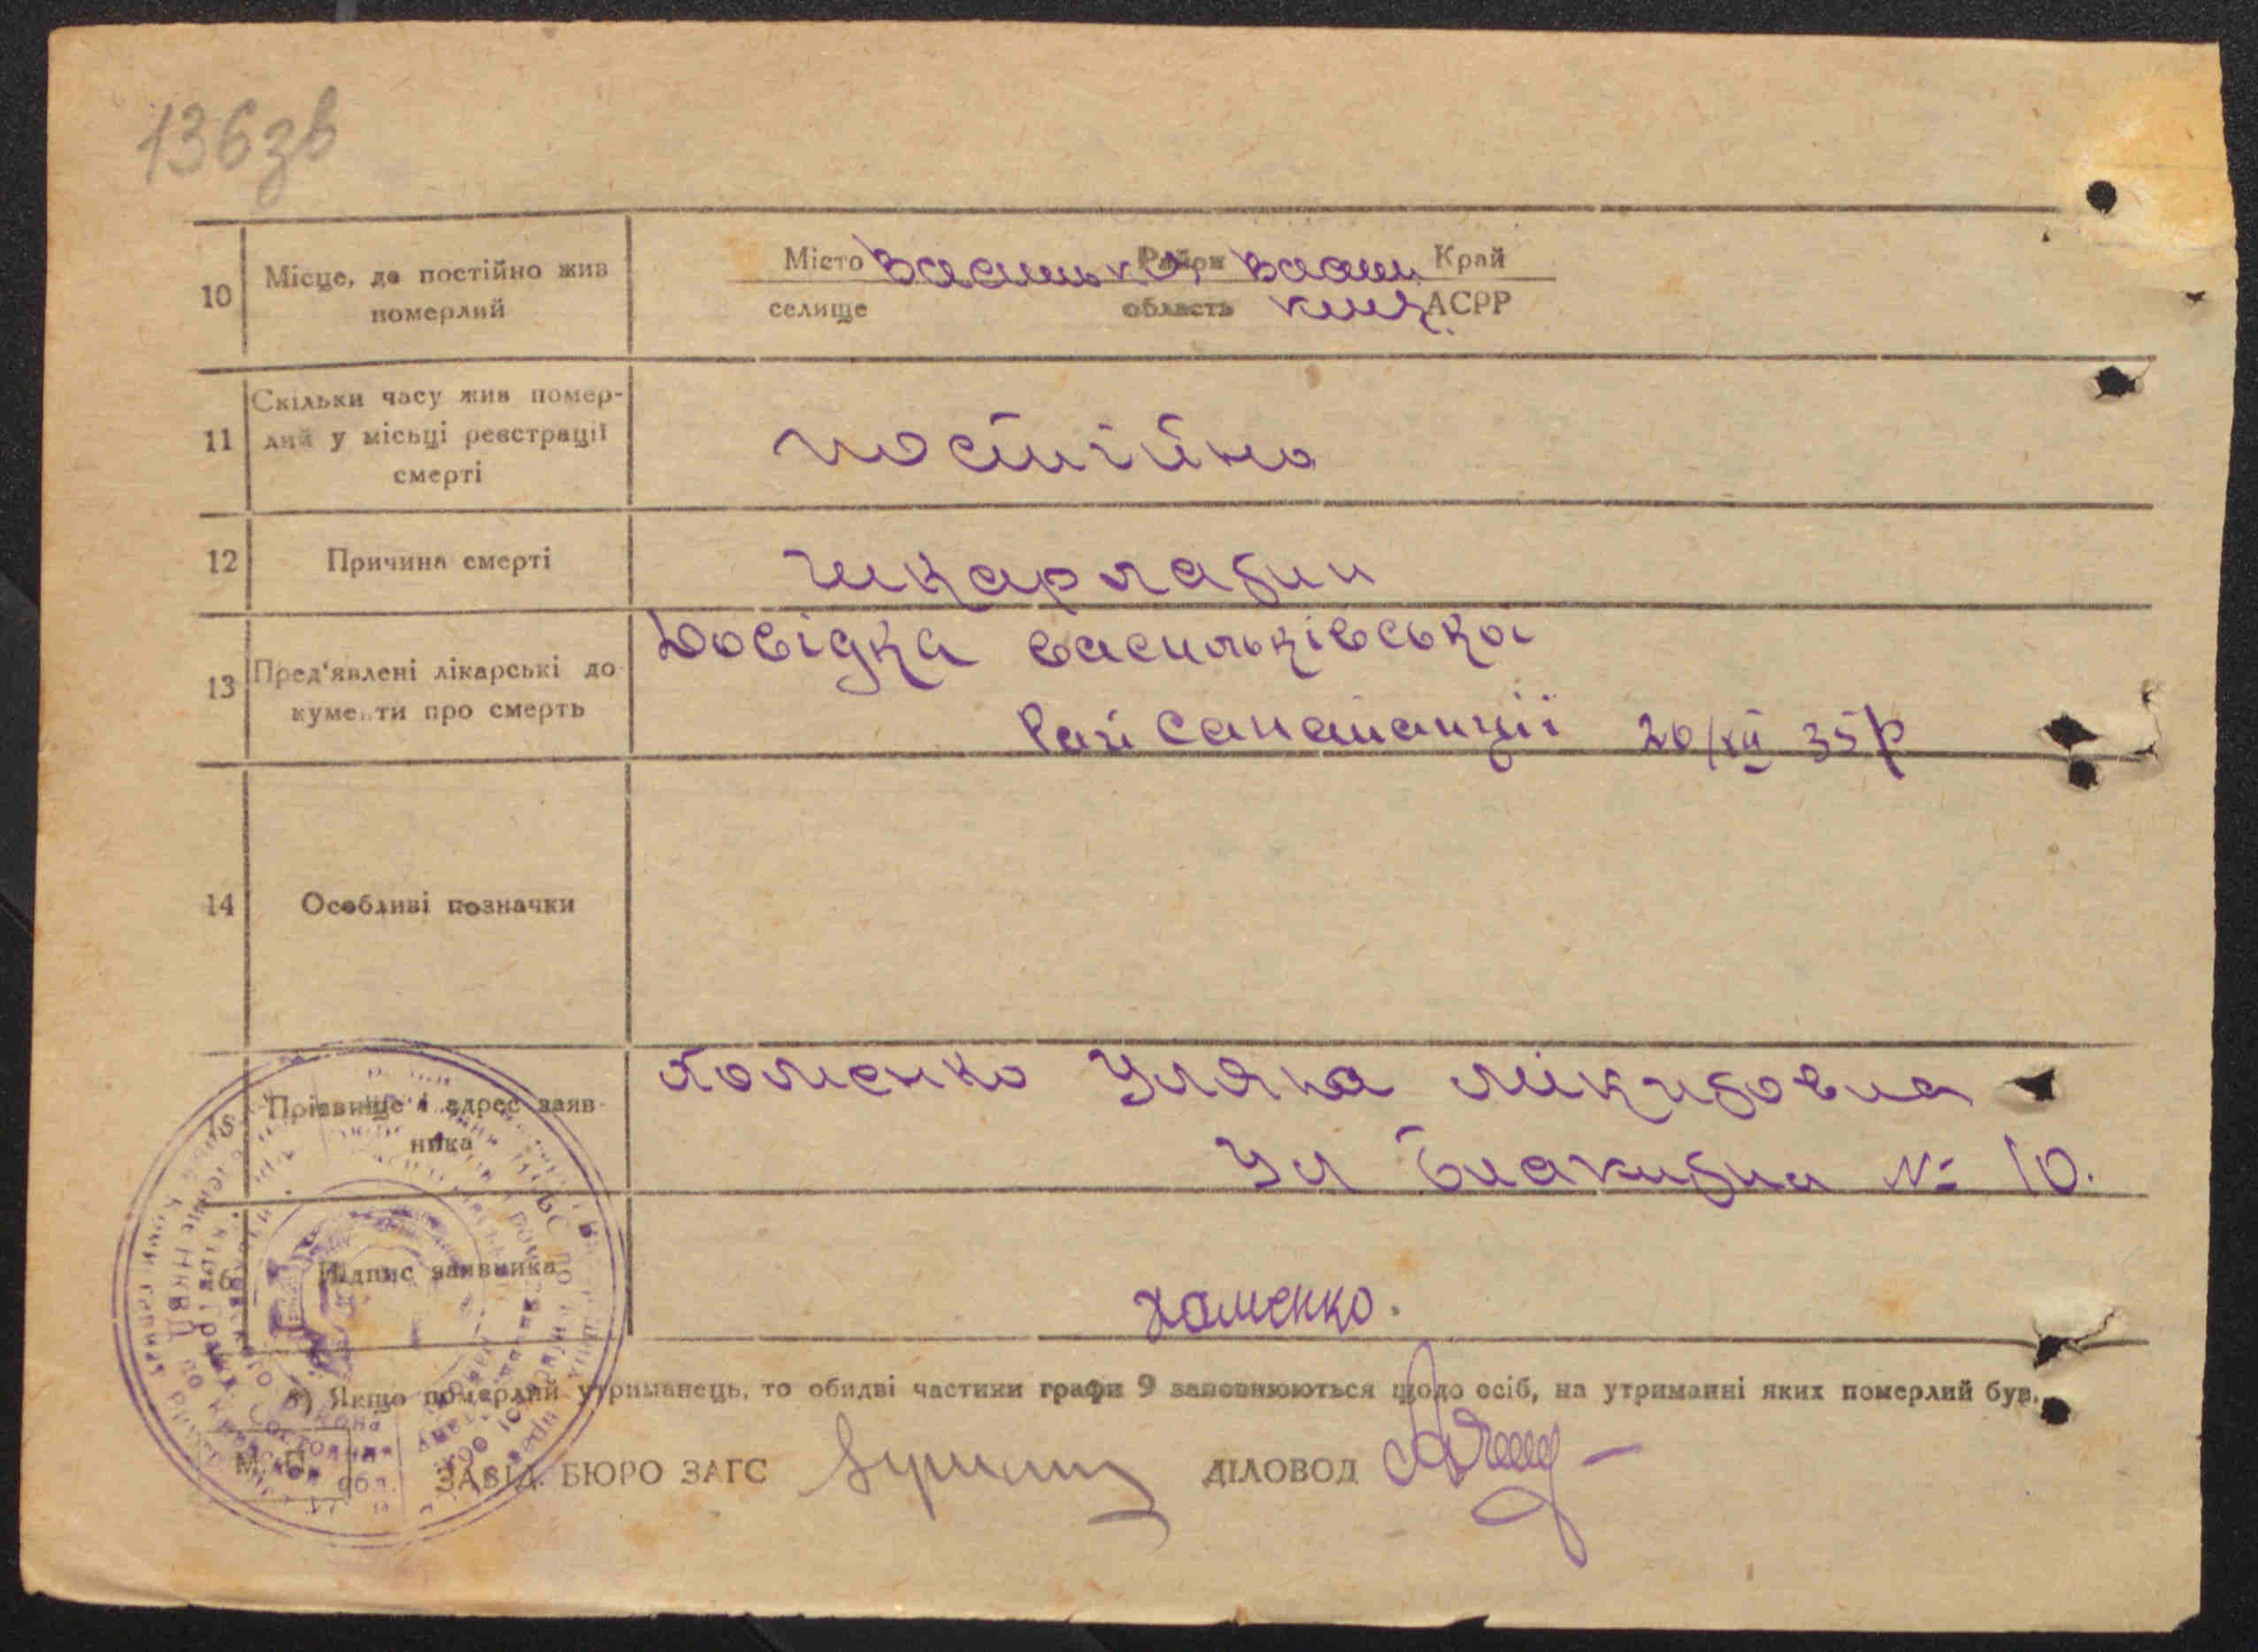 136зв
10 Місце, де постійно жив померлий
Місто Васильків Район Васил Край
селище область Київ. АСРР
11 Скільки часу жив помер-
лий у місьці реєстрації
смерті
постійно
12 Причина смерті
шкарлатин
13 Пред'явлені лікарські до
кументи про смерть
Довідка Васильківської
Рай Санстанції 20/XII 35 р
14 Особливі позначки
15 Прізвище і адрес заяв-
ника
Хоменко Уляна Мікитовна
Ул № 10.
16 Підпис заявника
Хоменко.
*) Якщо померлий утриманець, то обидві частини графи 9 заповнюються щодо осіб, на утриманні яких померлий був.
М. П.
ЗАВІД. БЮРО ЗАГС ДІЛОВОД